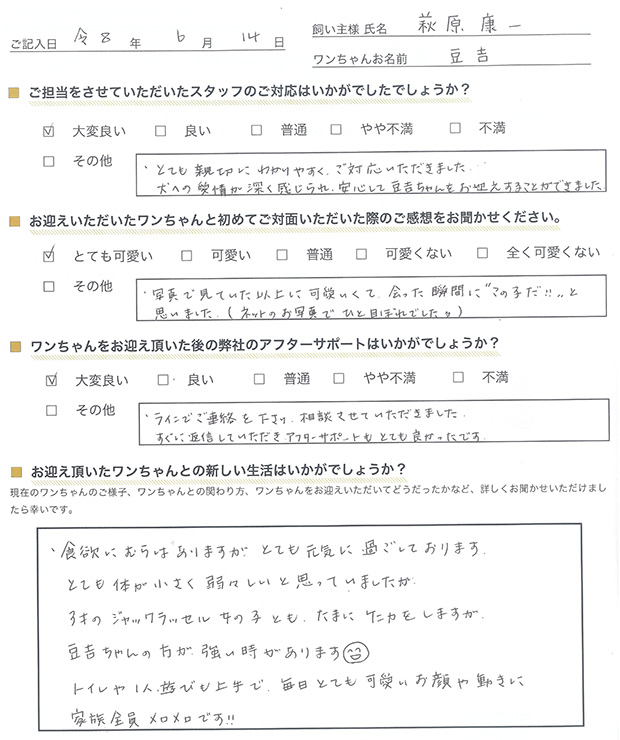 ご記入日 令8 年 6 月 14 日
飼い主様 氏名 萩原 康一
ワンちゃんお名前 豆吉
■ ご担当をさせていただいたスタッフのご対応はいかがでしたでしょうか？
☑ 大変良い □ 良い □ 普通 □ やや不満 □ 不満
□ その他
・とても親切にわかりやすく、ご対応いただきました。
犬への愛情が深く感じられ、安心して豆吉ちゃんをお迎えすることができました
■ お迎えいただいたワンちゃんと初めてご対面いただいた際のご感想をお聞かせください。
☑ とても可愛い □ 可愛い □ 普通 □ 可愛くない □ 全く可愛くない
□ その他
・写真で見ていた以上に可愛いくて、会った瞬間に"この子だ!!"と
思いました。(ネットのお写真でひと目ぼれでした。)
■ ワンちゃんをお迎え頂いた後の弊社のアフターサポートはいかがでしょうか？
☑ 大変良い □ 良い □ 普通 □ やや不満 □ 不満
□ その他
・ラインでご連絡を下さり、相談させていただきました。
すぐに返信していただきアフターサポートもとても良かったです。
■ お迎え頂いたワンちゃんとの新しい生活はいかがでしょうか？
現在のワンちゃんのご様子、ワンちゃんとの関わり方、ワンちゃんをお迎えいただいてどうだったかなど、詳しくお聞かせいただけまし
たら幸いです。
・食欲にむらはありますが、とても元気に過ごしております。
とても体が小さく弱々しいと思っていましたが、
3才のジャックラッセル女の子とも、たまにケンカをしますが、
豆吉ちゃんの方が強い時があります
トイレや1人遊びも上手で、毎日とても可愛いお顔や動きに
家族全員メロメロです!!